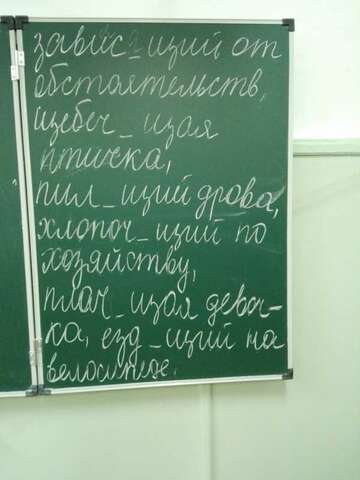 завис_щий от
обстоятельств,
щебеч_щая
птичка,
пил_щий дрова,
хлопоч_щий по
хозяйству,
плач_щая девоч-
ка, езд_щий на
велосипеде.